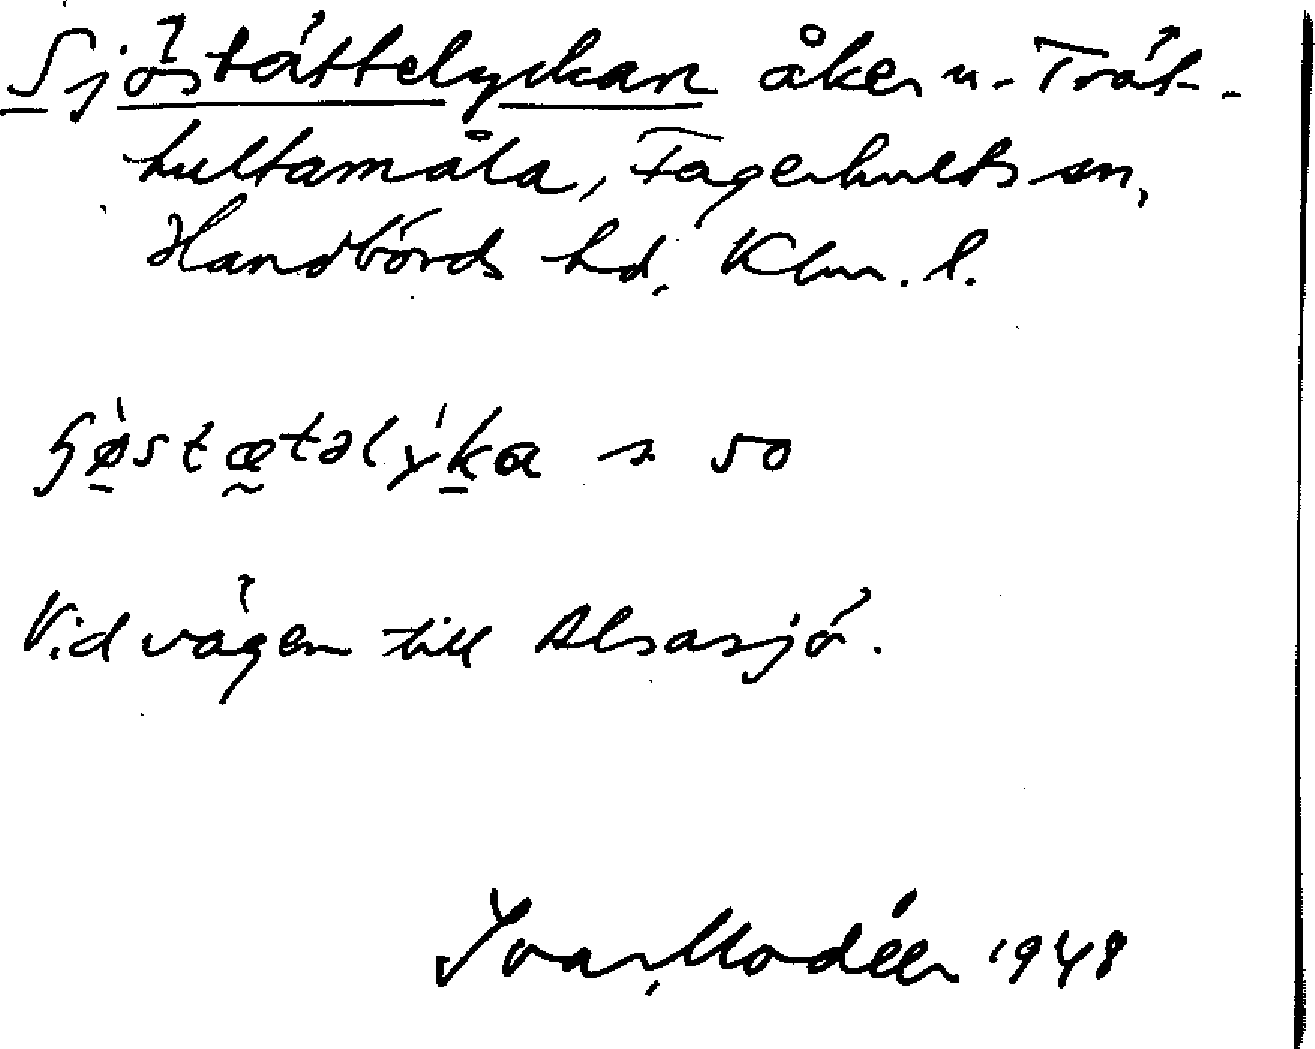 Sjöstättelyckan åker u. Trät-
hultamåla, Fagerhults sn,
Handbörds hd, Klm. l.
ʂø̀stætəlýka s 50
Vid vägen till Alsasjö.
Ivar Modéer 1948